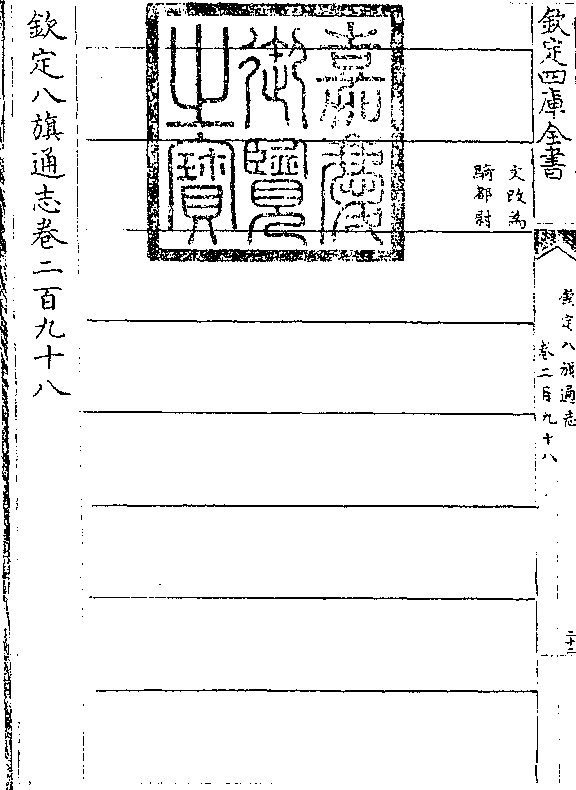 欽定四庫全書
欽定八旗通志
卷二百九十八
二十二
文改為
騎都尉
嘉慶
御覽
之寶
欽定八旗通志卷二百九十八